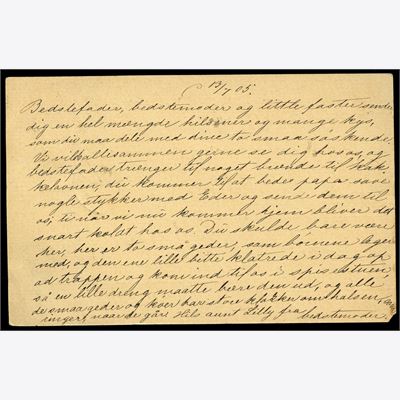 13/7 05.
Bedstefader, bedstemoder og little faster sender
dig en hel mængde hilsener og mange kys,
som du maa dele med dine to smaa søskende.
Vi vilde allesammen gerne se dig hos os, og
bedstefader trænger til noget brænde til kak-
kelovnen; du kommer til at bede papa save
nogle stykker med Eder og sende dem til
os, ti når vi nu kommer hjem bliver det
snart koldt hos os. Du skulde bare være
her, her er to små geder, som børnene leger
med, og den ene lille bitte klatrede i dag op
ad trappen og kom ind til os i spisestuen,
så en lille dreng maatte bære den ud, og alle
de smaa geder og køer har store klokker om halsen, som
ringer, naar de går. Hils aunt Lilly fra bedstemoder.